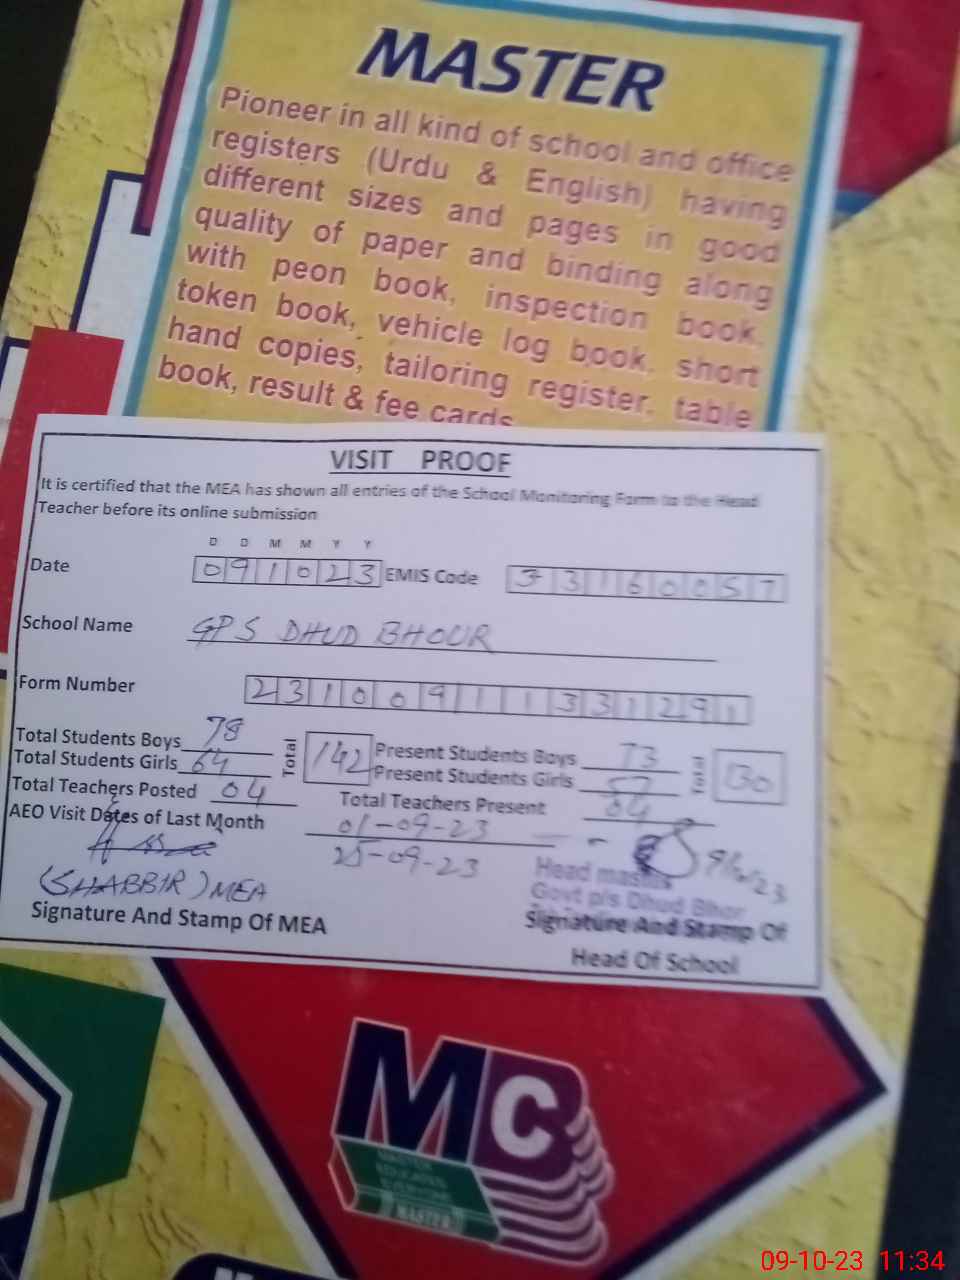 MASTER
Pioneer in all kind of school and office
registers (Urdu & English) having
different sizes and pages in good
quality of paper and binding along
with peon book, inspection book,
token book, vehicle log book, short
hand copies, tailoring register, table
book, result & fee cards
VISIT PROOF
It is certified that the MEA has shown all entries of the School Monitoring Form to the Head
Teacher before its online submission
D D M M Y Y
Date 091023 EMIS Code 33160057
School Name GPS DHUD BHOUR
Form Number 23100911331291
Total Students Boys 78 Total 142 Present Students Boys 73 Total 130
Total Students Girls 64 Present Students Girls 57
Total Teachers Posted 04 Total Teachers Present 04
AEO Visit Dates of Last Month 01-09-23
25-09-23
9/10/23
(SHABBIR) MEA
Head master
Govt p/s Dhud Bhor
Signature And Stamp Of MEA
Signature And Stamp Of
Head Of School
MC
MASTER
09-10-23 11:34